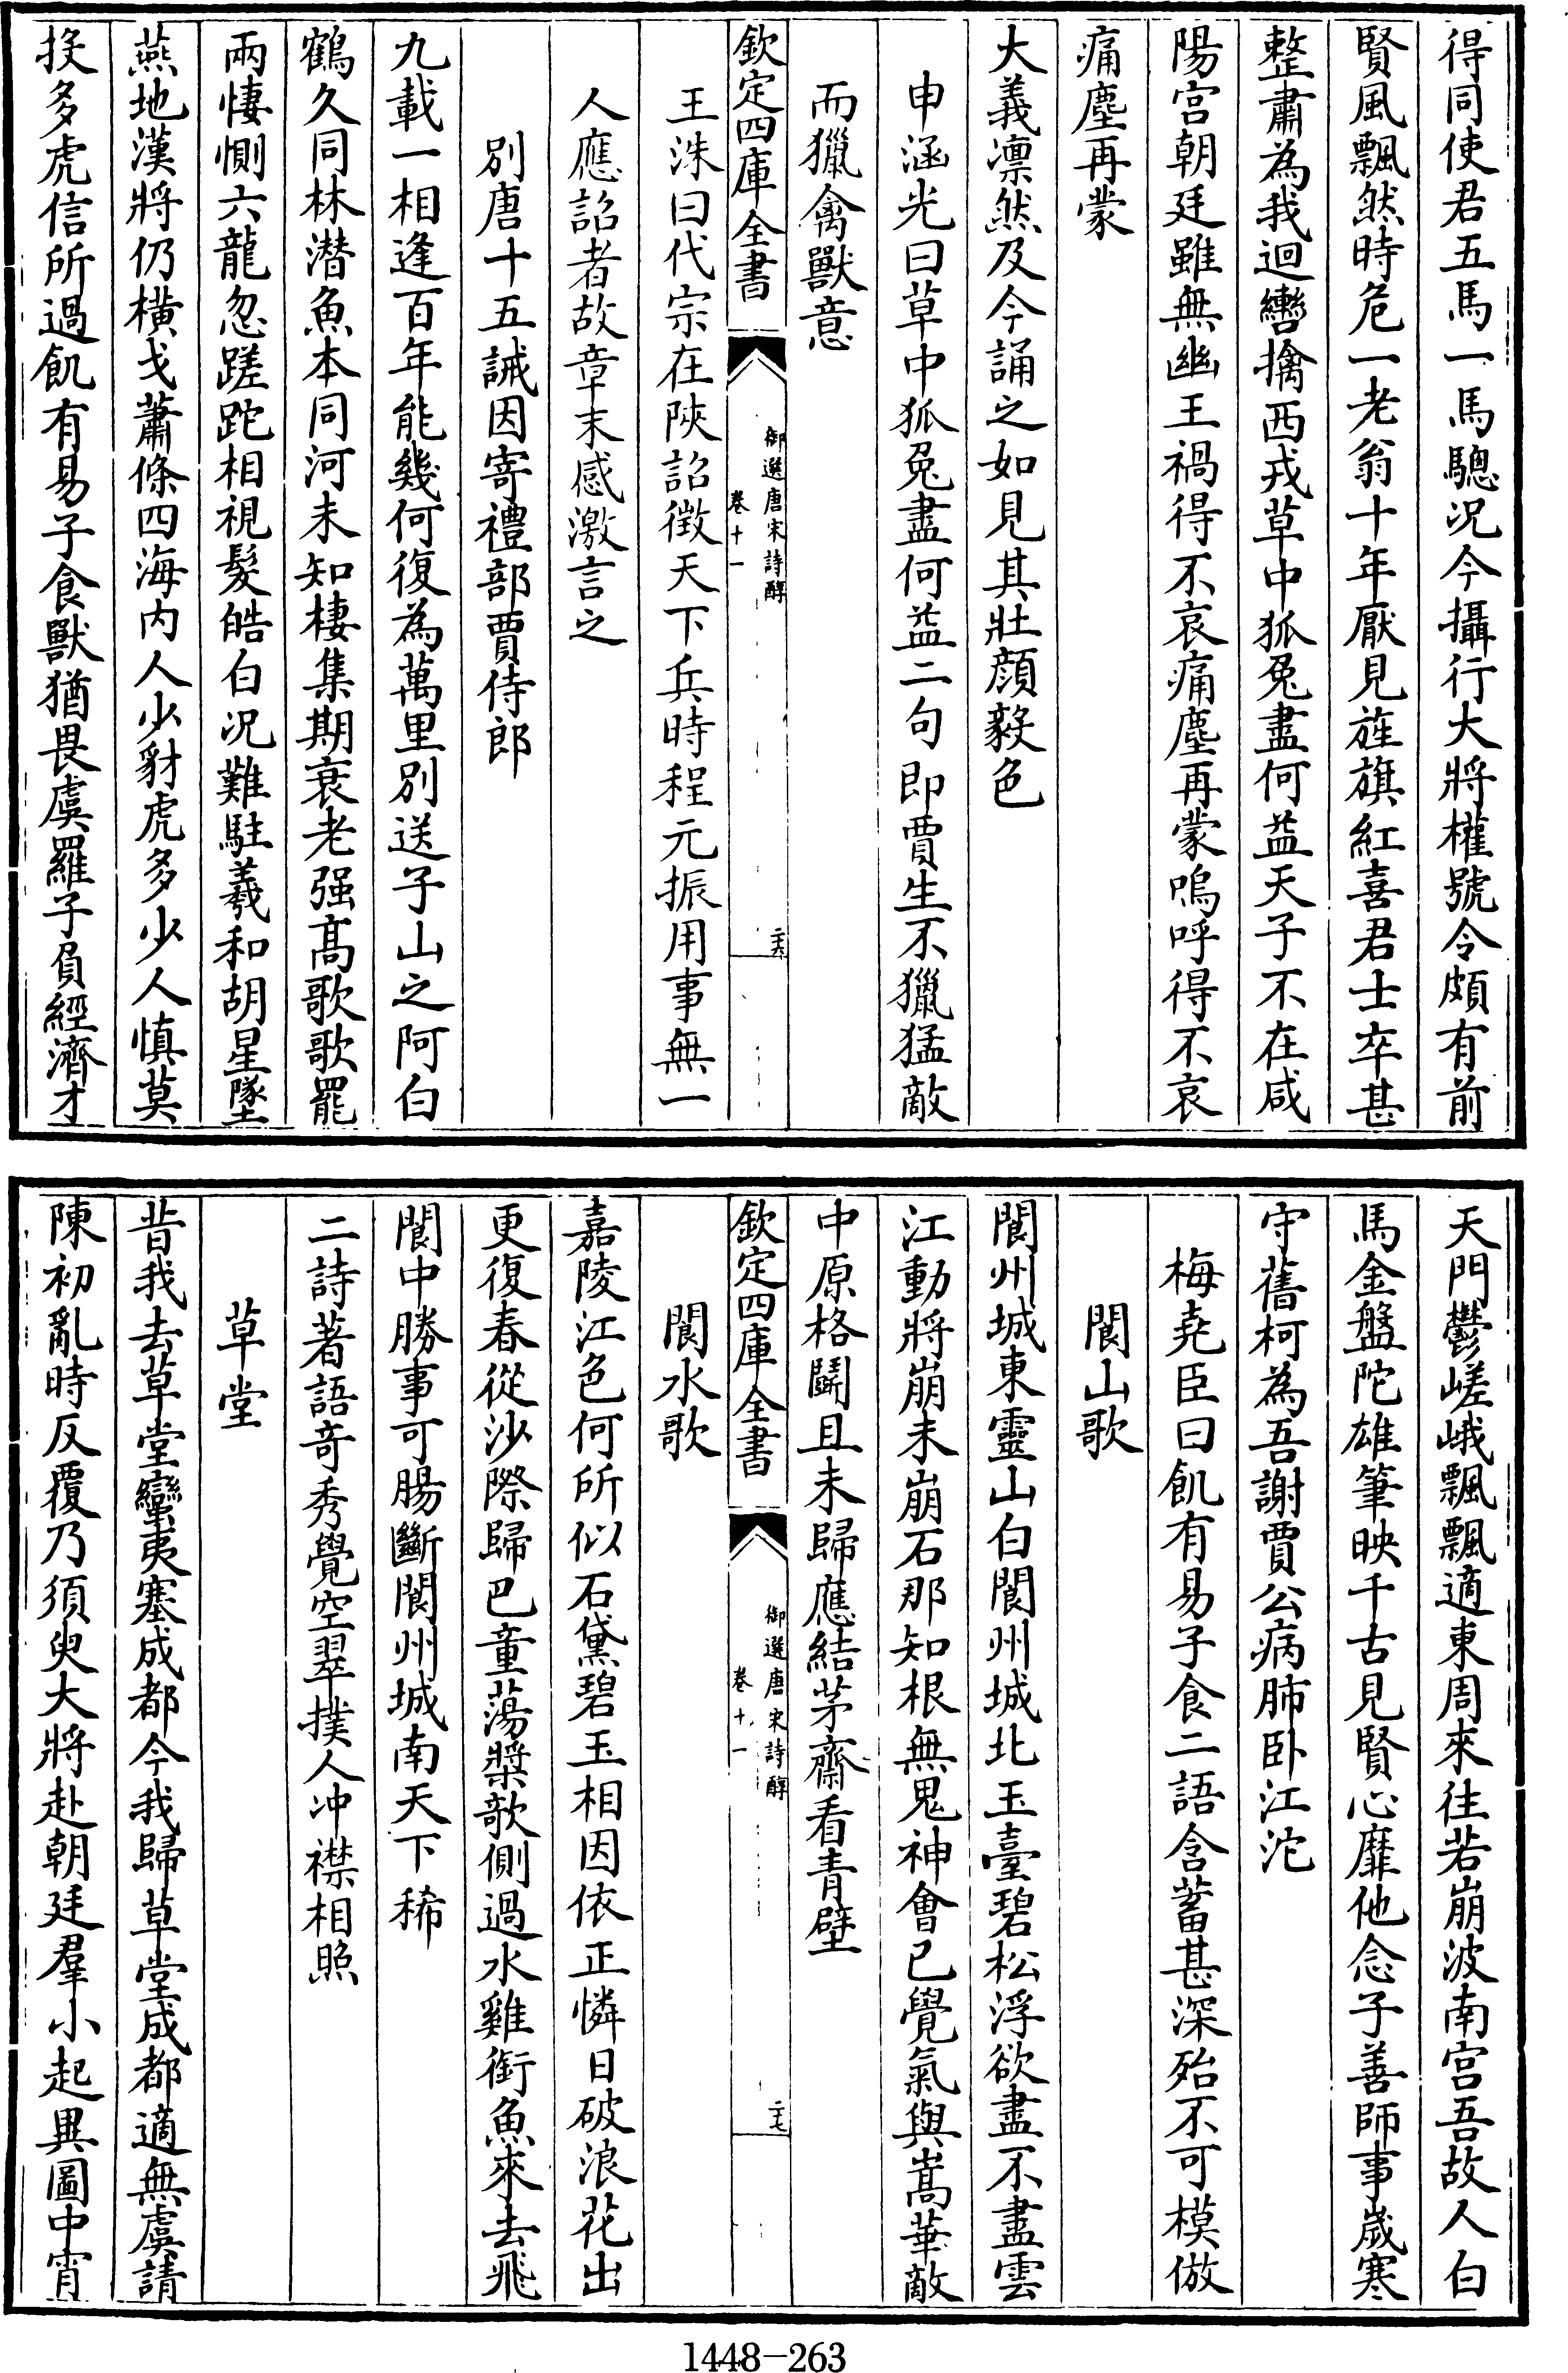 得同使君五馬一馬驄况今攝行大將權號令頗有前
賢風飄然時危一老翁十年厭見旌旗紅喜君士卒甚
整肅為我迴轡擒西戎草中狐兔盡何益天子不在咸
陽宫朝廷雖無幽王禍得不哀痛塵再蒙嗚呼得不哀
痛塵再蒙
大義凛然及今誦之如見其壯顔毅色
申涵光曰草中狐兔盡何益二句即賈生不獵猛敵
而獵禽獸意
欽定四庫全書
御選唐宋詩醇
卷十一
二六
王洙曰代宗在陝詔徴天下兵時程元振用事無一
人應詔者故章末感激言之
别唐十五誡因寄禮部賈侍郎
九載一相逢百年能幾何復為萬里别送子山之阿白
鶴久同林潜魚本同河未知棲集期衰老强髙歌歌罷
兩悽惻六龍忽蹉跎相視髮皓白况難駐羲和胡星墜
燕地漢將仍橫戈蕭條四海内人少豺虎多少人慎莫
投多虎信所過飢有易子食獸猶畏虞羅子負經濟才
天門鬱嵯峨飄飄適東周來往若崩波南宫吾故人白
馬金盤陀雄筆映千古見賢心靡他念子善師事嵗寒
守舊柯為吾謝賈公病肺卧江沱
梅堯臣曰飢有易子食二語含蓄甚深殆不可模倣
閬山歌
閬州城東靈山白閬州城北玉臺碧松浮欲盡不盡雲
江動將崩未崩石那知根無鬼神會已覺氣與嵩華敵
中原格鬭且未歸應結茅齋看青壁
欽定四庫全書
御選唐宋詩醇
卷十一
二七
閬水歌
嘉陵江色何所似石黛碧玉相因依正憐日破浪花出
更復春從沙際歸巴童蕩槳欹側過水雞銜魚來去飛
閬中勝事可腸斷閬州城南天下稀
二詩著語竒秀覺空翠撲人冲襟相照
草堂
昔我去草堂蠻夷塞成都今我歸草堂成都適無虞請
陳初亂時反覆乃須臾大將赴朝廷羣小起異圖中宵
1448-263